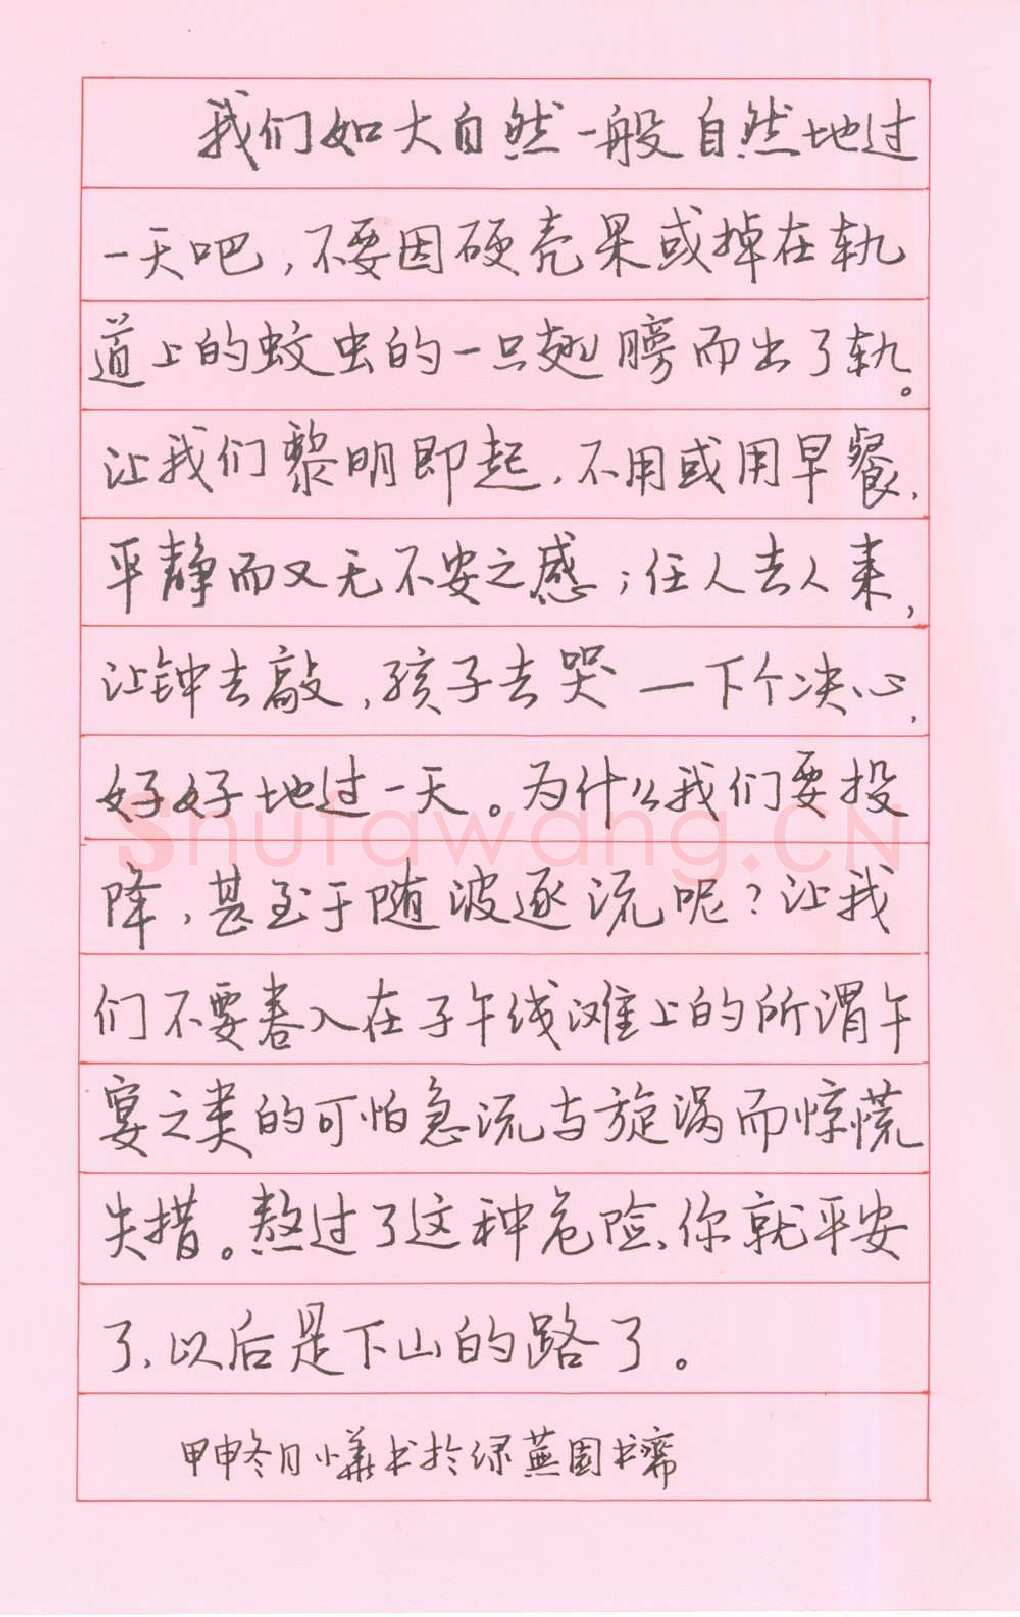 我们如大自然一般自然地过
一天吧，不要因硬壳果或掉在轨
道上的蚊虫的一只翅膀而出了轨。
让我们黎明即起，不用或用早餐，
平静而又无不安之感；任人去人来，
让钟去敲，孩子去哭 — 下个决心，
好好地过一天。为什么我们要投
降，甚至于随波逐流呢？让我
们不要卷入在子午线滩上的所谓午
宴之类的可怕急流与旋涡而惊慌
失措。熬过了这种危险、你就平安
了，以后是下山的路了。
甲申冬月小华书于绿芜园书斋
Shufawang.CN